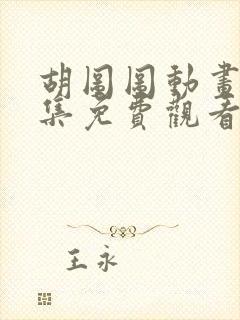 胡圖圖動畫
集免費觀看
王永